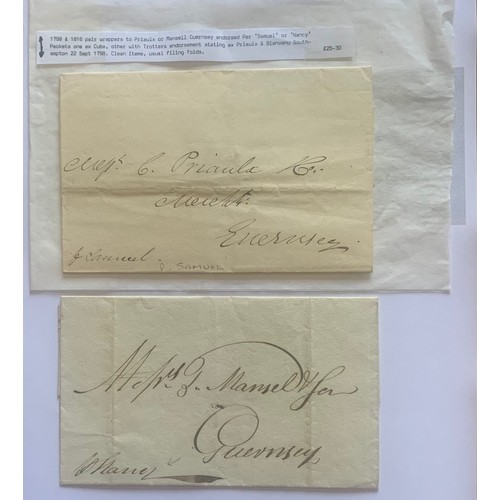 1798 & 1816 pair wrappers to Priaulx or Mansell Guernsey endorsed Per "Samuel" or "Nancy"
Packets one ex Cuba, other with Trotters endorsement stating ex Priaulx & Bienvenu South-
ampton 22 Sept 1798. Clean items, usual filing folds.
£25-30
Messrs. C. Priaulx & Co.
Merchts.
Guernsey
p Samuel
p. SAMUEL
Messrs. T. Mansel & Son
Guernsey
p Nancy